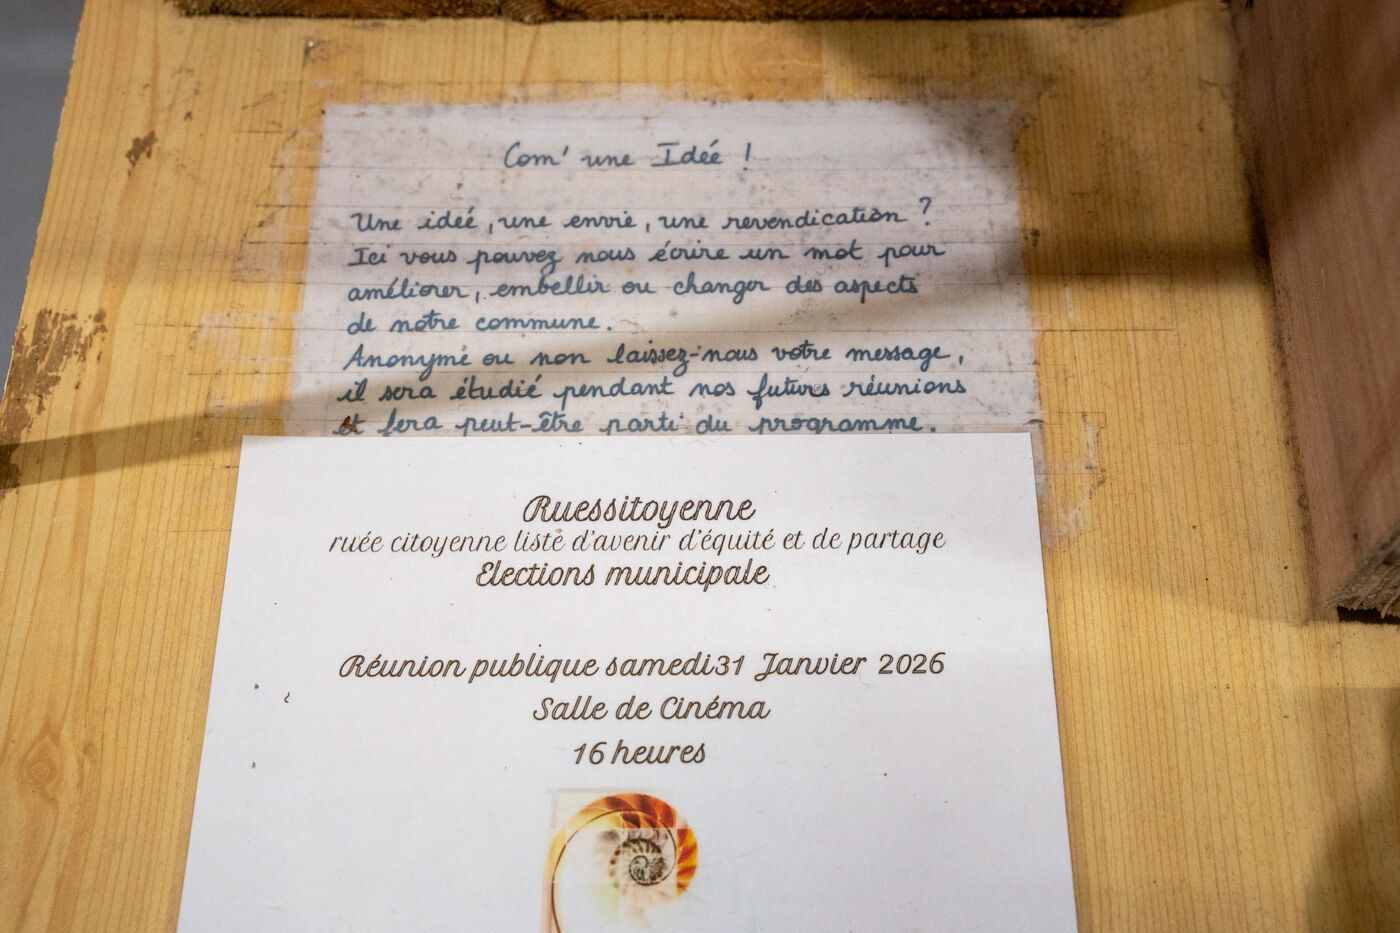 Com' une Idée !
Une idée, une envie, une revendication ?
Ici vous pouvez nous écrire un mot pour
améliorer, embellir ou changer des aspects
de notre commune.
Anonyme ou non laissez-nous votre message,
il sera étudié pendant nos futures réunions
et fera peut-être parti du programme.
Ruessitoyenne
ruée citoyenne liste d'avenir d'équité et de partage
Elections municipale
Réunion publique samedi31 Janvier 2026
Salle de Cinéma
16 heures